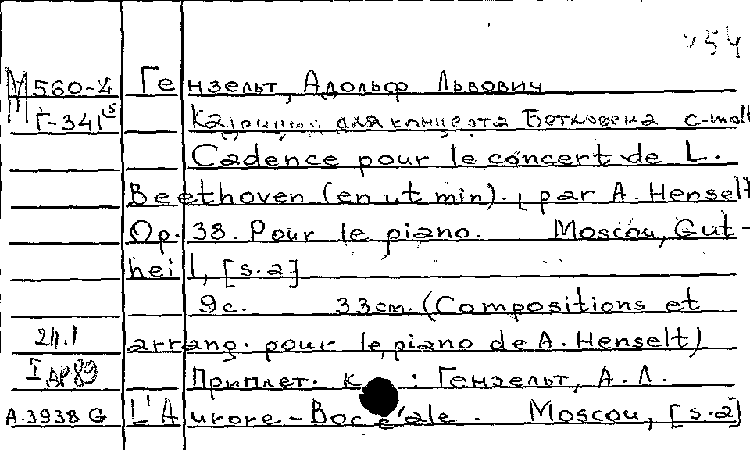 754
М 560-4 Гензельт, Адольф Львович
Г-341 Каденция для концерта Бетховена c-moll
Cadence pour le concert de L.
Beethoven (en ut min)., par A. Henselt
Op. 38. Pour le piano. Moscou, Gut-
heil, [s.a]
9с. 33cm. (Compositions et
24.1 arrang. pour le piano de A. Henselt)
I др 89 Приплет. к : Гензельт, А. Л.
A.3938 G L'Aurore-Boréale. Moscou, [s.a]